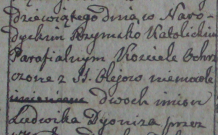 Dziewiątego dnia, w Naro-
dyckim Rzymsko Katolickim
Parafialnym Kościele Ochrz-
czone z S. Olejow niemowle
dwoch imion
Ludwika Dyoniza przez